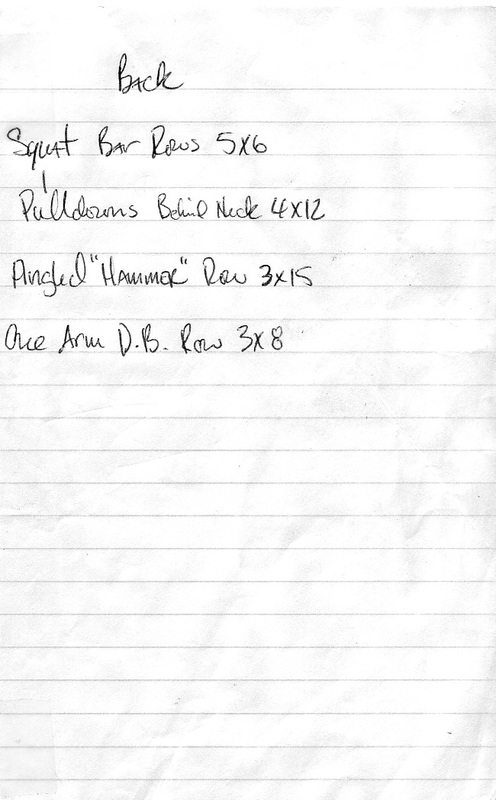 Back
Squat Bar Rows 5x6
Pulldowns Behind Neck 4x12
Angled "Hammer" Row 3x15
One Arm D.B. Row 3x8